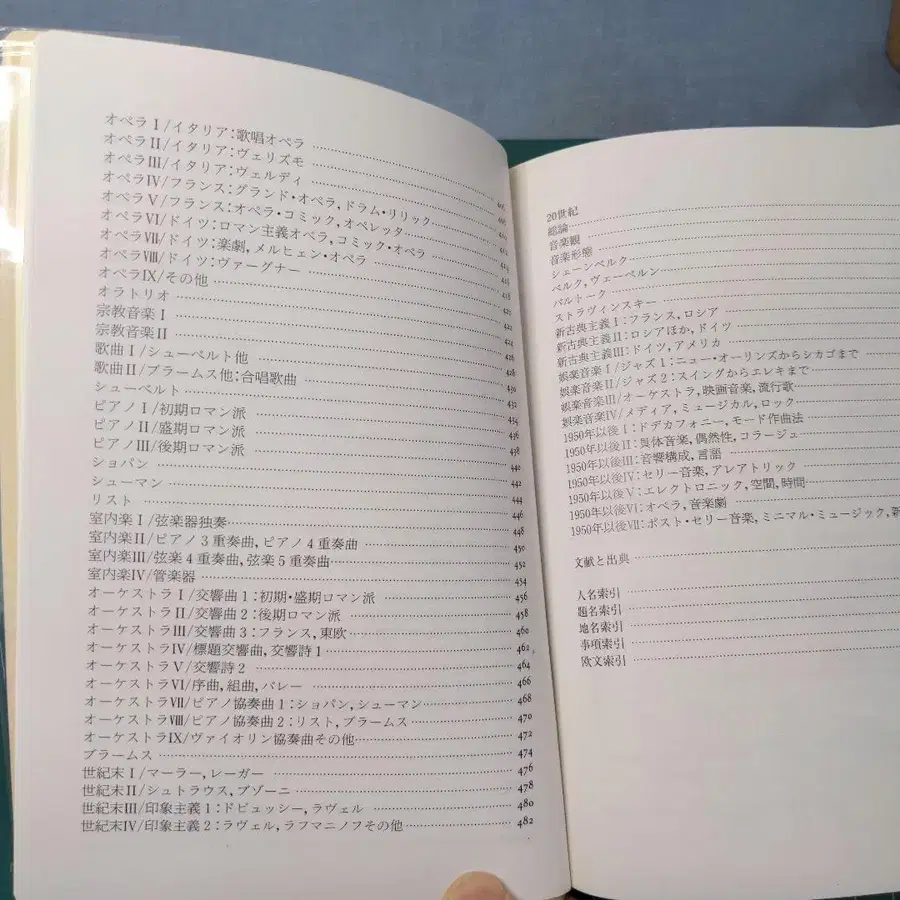 オペラⅠ/イタリア:歌唱オペラ
オペラⅡ/イタリア:ヴェリズモ
オペラⅢ/イタリア:ヴェルディ
オペラⅣ/フランス:グランド・オペラ,ドラム・リリック
オペラⅤ/フランス:オペラ・コミック,オペレッタ
オペラⅥ/ドイツ:ロマン主義オペラ,コミック・オペラ
オペラⅦ/ドイツ:楽劇,メルヒェン・オペラ
オペラⅧ/ドイツ:ヴァーグナー
オペラⅨ/その他
オラトリオ
宗教音楽Ⅰ
宗教音楽Ⅱ
歌曲Ⅰ/シューベルト他 428
歌曲Ⅱ/ブラームス他:合唱歌曲 430
シューベルト 432
ピアノⅠ/初期ロマン派 434
ピアノⅡ/盛期ロマン派 436
ピアノⅢ/後期ロマン派 438
ショパン 440
シューマン 444
リスト 446
室内楽Ⅰ/弦楽器独奏 448
室内楽Ⅱ/ピアノ3重奏曲,ピアノ4重奏曲 450
室内楽Ⅲ/弦楽4重奏曲,弦楽5重奏曲 452
室内楽Ⅳ/管楽器 454
オーケストラⅠ/交響曲1:初期・盛期ロマン派 456
オーケストラⅡ/交響曲2:後期ロマン派 458
オーケストラⅢ/交響曲3:フランス,東欧 460
オーケストラⅣ/標題交響曲,交響詩1 462
オーケストラⅤ/交響詩2 464
オーケストラⅥ/序曲,組曲,バレー 466
オーケストラⅦ/ピアノ協奏曲1:ショパン,シューマン 468
オーケストラⅧ/ピアノ協奏曲2:リスト,ブラームス 470
オーケストラⅨ/ヴァイオリン協奏曲その他 472
ブラームス 474
世紀末Ⅰ/マーラー,レーガー 476
世紀末Ⅱ/シュトラウス,ブゾーニ 478
世紀末Ⅲ/印象主義1:ドビュッシー,ラヴェル 480
世紀末Ⅳ/印象主義2:ラヴェル,ラフマニノフその他 482
20世紀
総論
音楽観
音楽形態
シェーンベルク
ベルク,ヴェーベルン
バルトーク
ストラヴィンスキー
新古典主義Ⅰ:フランス,ロシア
新古典主義Ⅱ:ロシアほか,ドイツ
新古典主義Ⅲ:ドイツ,アメリカ
娯楽音楽Ⅰ/ジャズ1:ニュー・オーリンズからシカゴまで
娯楽音楽Ⅱ/ジャズ2:スイングからエレキまで
娯楽音楽Ⅲ/オーケストラ,映画音楽,流行歌
娯楽音楽Ⅳ/メディア,ミュージカル,ロック
1950年以後Ⅰ:ドデカフォニー,モード作曲法
1950年以後Ⅱ:具体音楽,偶然性,コラージュ
1950年以後Ⅲ:音響構成,言語
1950年以後Ⅳ:セリー音楽,アレアトリック
1950年以後Ⅴ:エレクトロニック,空間,時間
1950年以後Ⅵ:オペラ,音楽劇
1950年以後Ⅶ:ポスト・セリー音楽,ミニマル・ミュージック,新
文献と出典
人名索引
題名索引
地名索引
事項索引
欧文索引